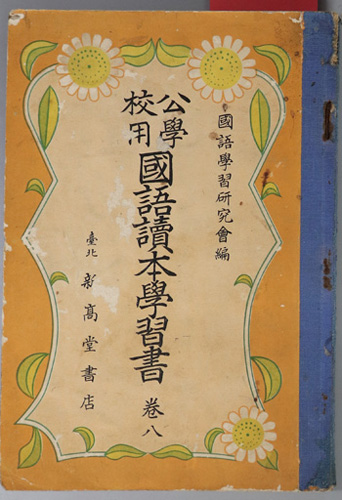 國語學習研究會編
公學校用
國語讀本學習書 卷八
臺北 新高堂書店